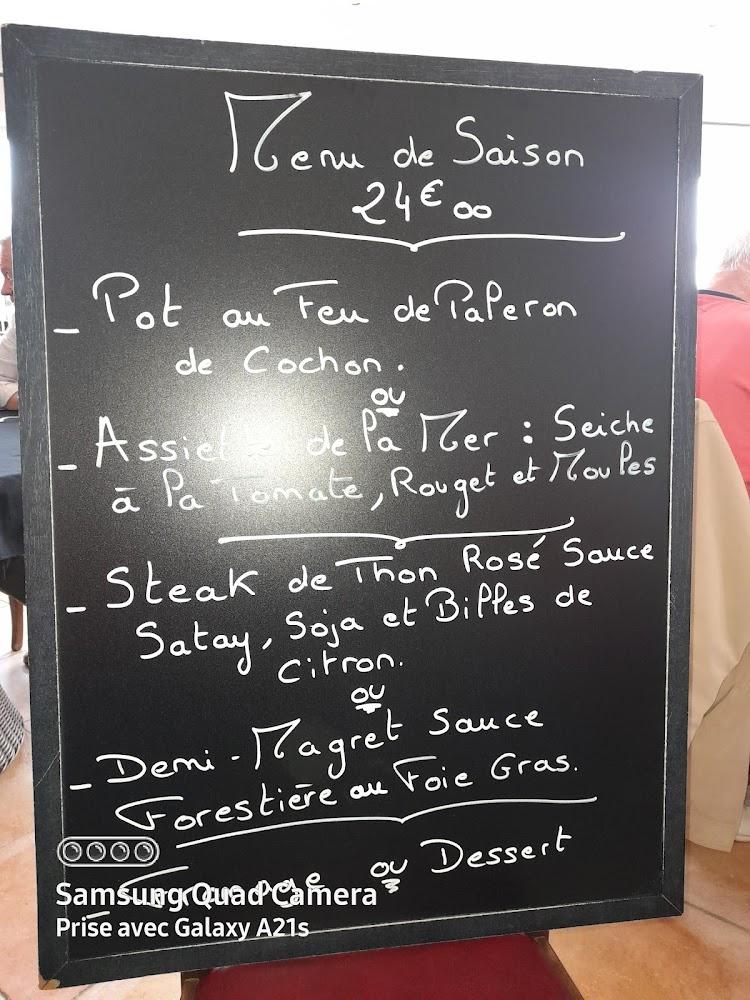 Menu de Saison
24€00
- Pot au Feu de Paleron
de Cochon.
ou
- Assiette de la Mer : Seiche
à la Tomate, Rouget et Moules
- Steak de Thon Rosé Sauce
Satay, Soja et Billes de
Citron.
ou
- Demi-Magret Sauce
Forestière au Foie Gras.
- Fromage ou Dessert
Samsung Quad Camera
Prise avec Galaxy A21s